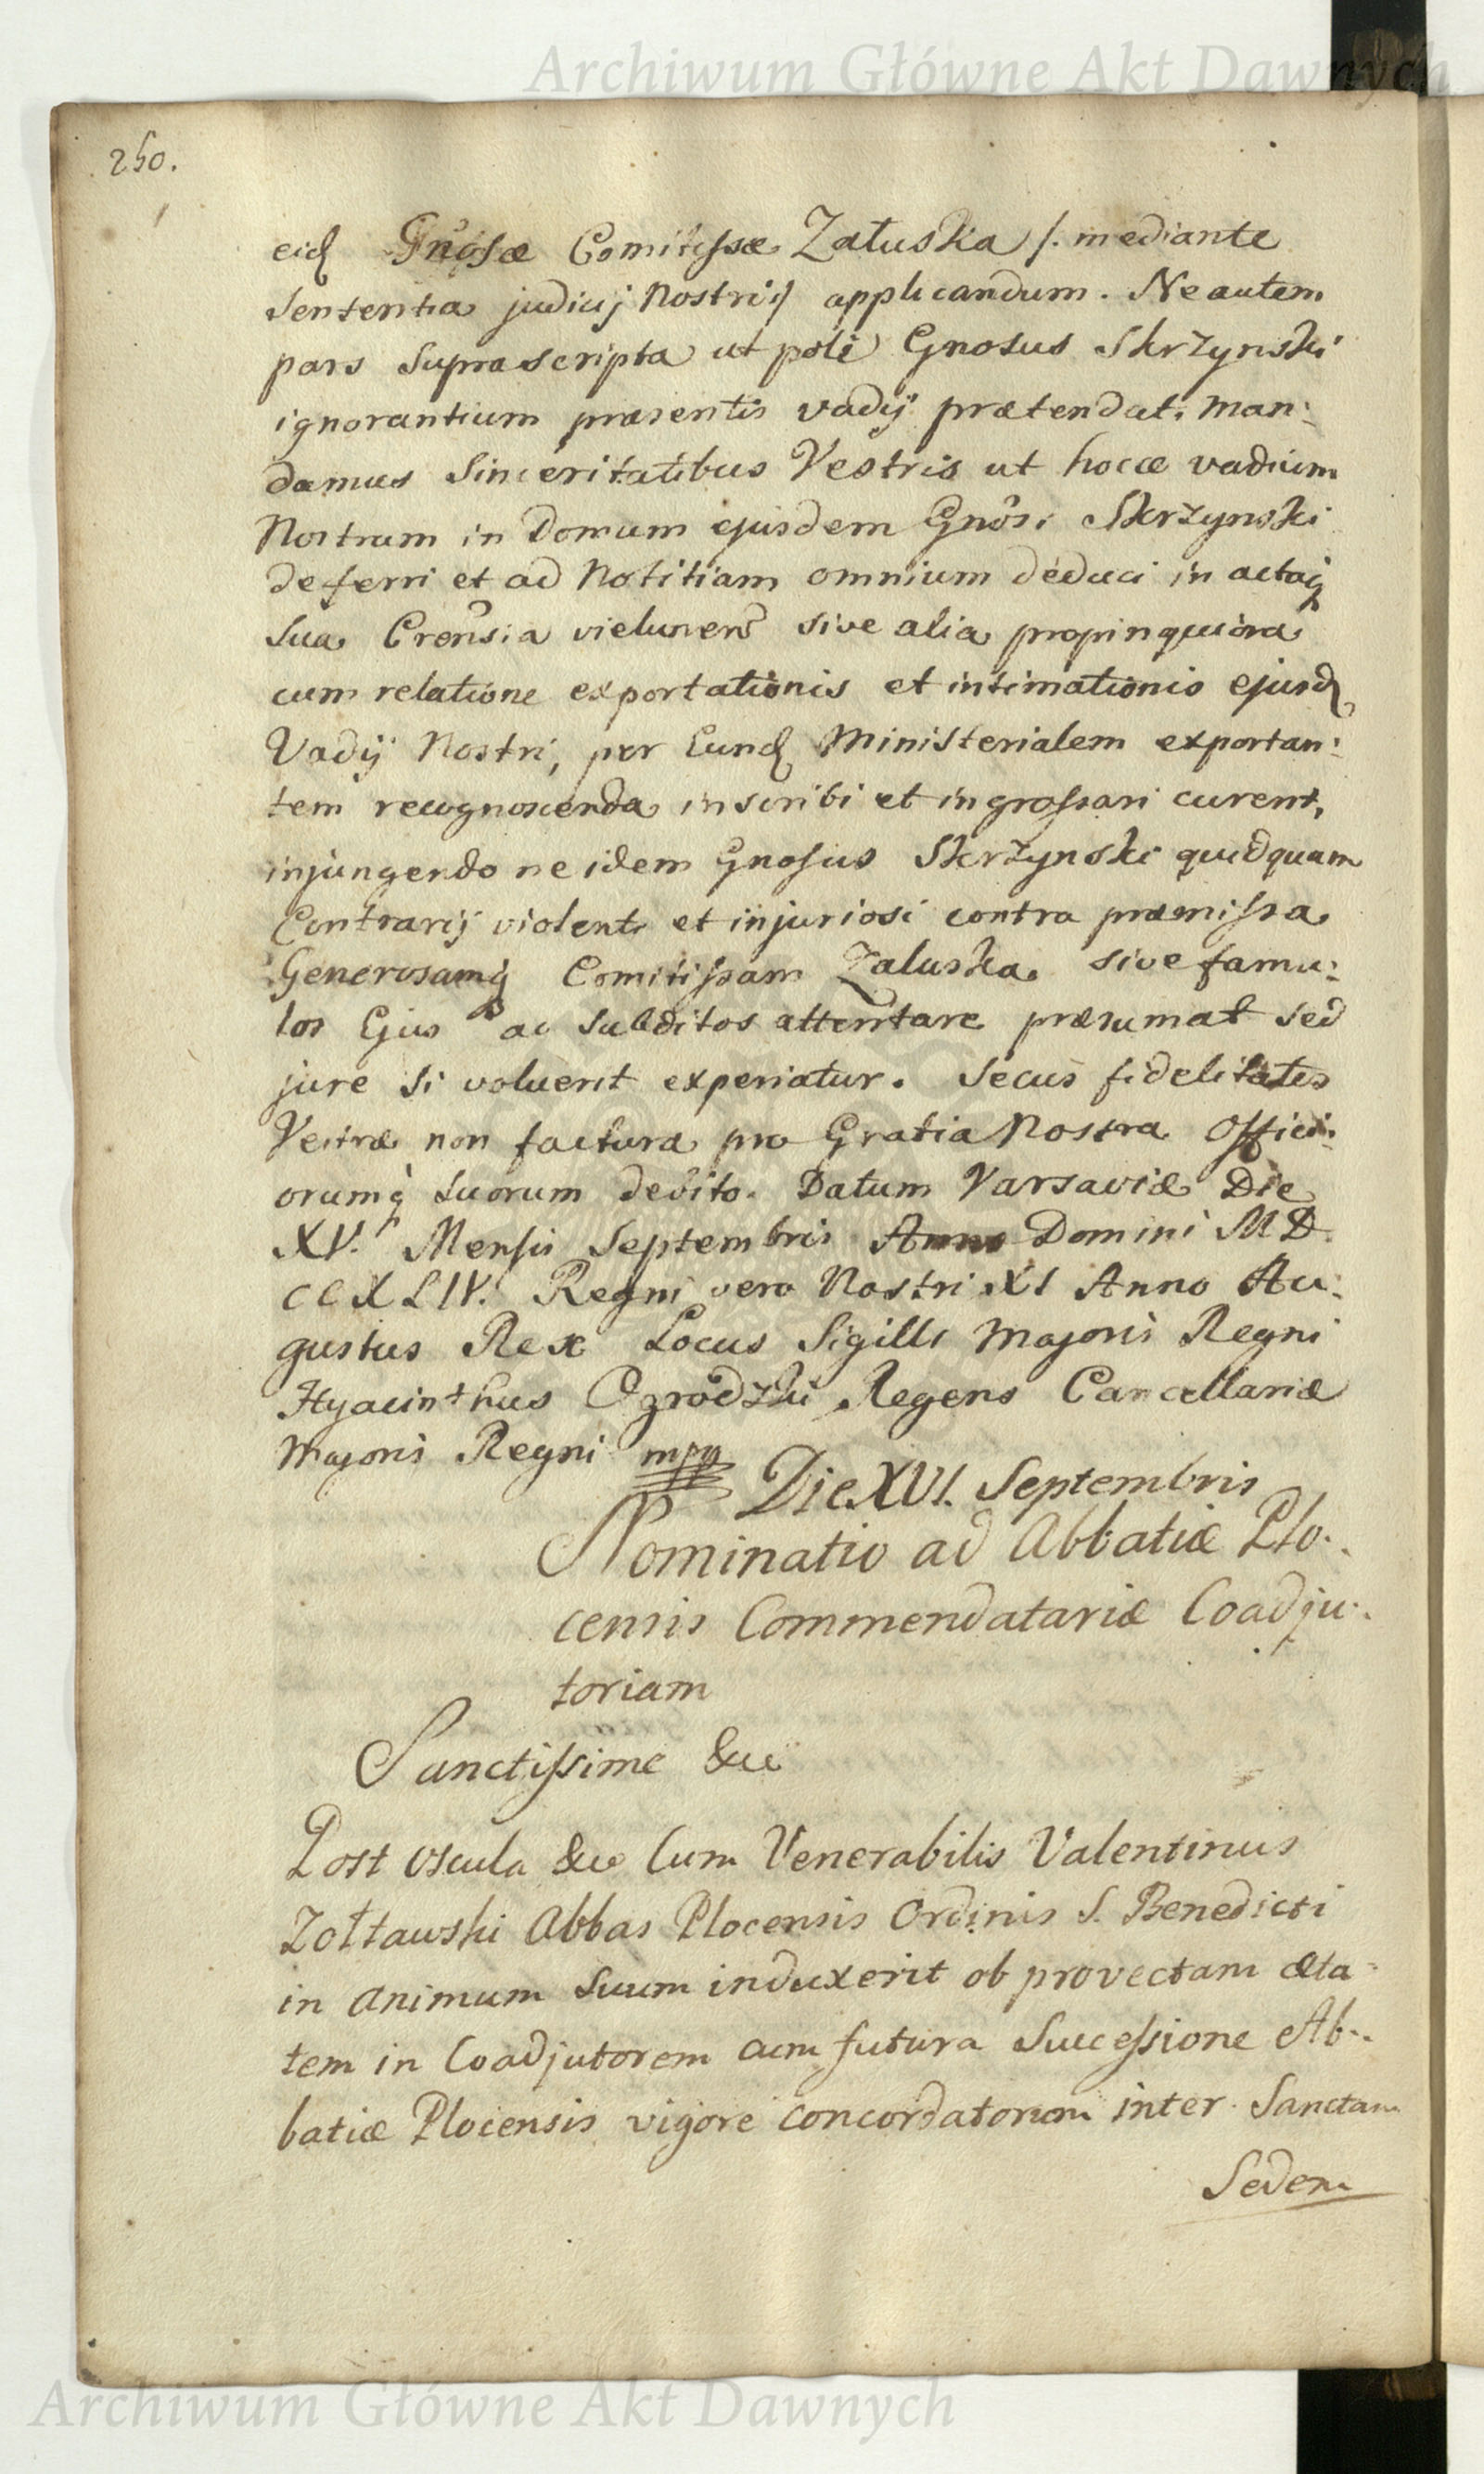 Archiwum Główne Akt Dawnych
250.
eid Gnosæ Comitissæ Załuska /. mediante
Sententia judicij Nostri ./ applicandum. Ne autem
pars Suprascripta ut pote Gnosus Skrzynski
ignorantium præsentis vadij prætendat. man:
damus Sinceritatibus Vestris ut hocce vadium
Nostrum in Domum ejusdem Gnosi Skrzynski
deferri et ad Notitiam omnium deduci in actaq
Sua Crensia vielunen sive alia propinquiora
cum relatione exportationis et intimationis ejusd
Vadij Nostri, per Eund Ministerialem exportan:
tem recognoscenda inscribi et ingrossari curent,
injungendo ne idem Gnosus Skrzynski quidquam
Contrarij violenti et injuriosi contra præmissa
Generosamq Comitissam Zaluska sive famu:
los Ejus ac Subditos attentare præsumat sed
jure si voluerit experiatur. Secus fidelitates
Vestræ non factura pro Gratia Nostra Offici:
orumq suorum debito. Datum Varsaviæ Die
XV. Mensis Septembris Anno Domini MD
CCXLIV. Regni vero Nostri XI Anno Au:
gustus Rex Locus Sigilli Majoris Regni
Hyacinthus Ogrodzki Regens Cancellariæ
Majoris Regni mpp
Die XVI. Septembris
Nominatio ad Abbatiæ Plo:
censis Commendatariæ Coadju:
toriam
Sanctissime &c
Post oscula &c Cum Venerabilis Valentinus
Zołtawski Abbas Plocensis Ordinis S. Benedicti
in animum Suum induxerit ob provectam æta=
tem in Coadjutorem cum futura Successione Ab:
batiæ Plocensis vigore concordatorum inter Sanctam
Sedem
Archiwum Główne Akt Dawnych